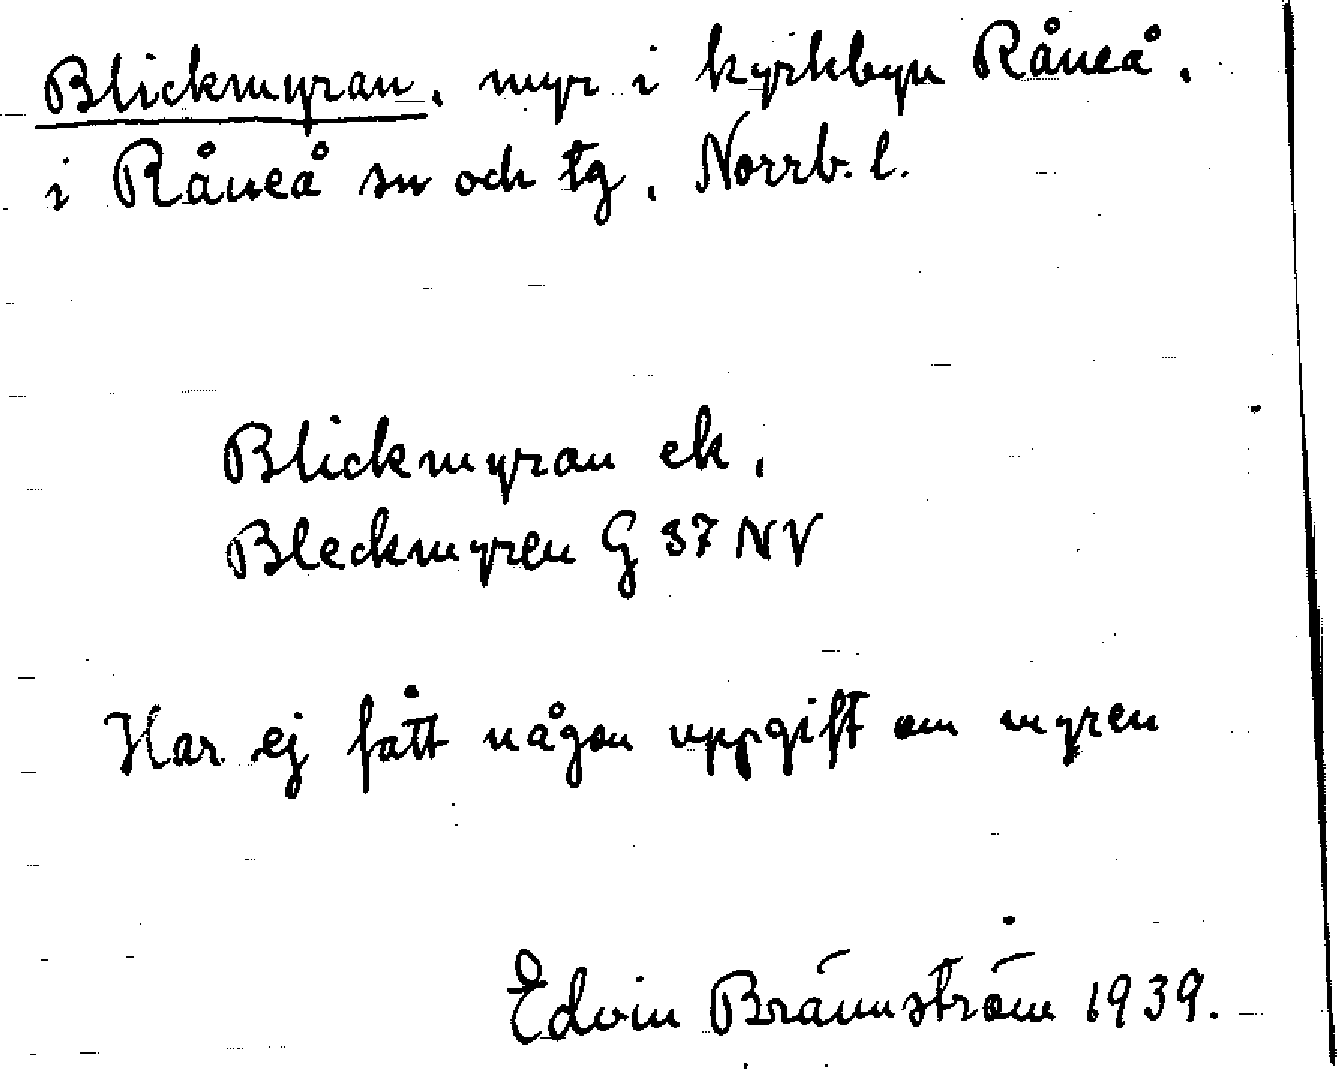 Blickmyran, myr i kyrkbyn Råneå,
i Råneå sn och tg, Norrb. l.
Blickmyran ek,
Bleckmyren G 37 NV
Har ej fått någon uppgift om myren
Edvin Brännström 1939.